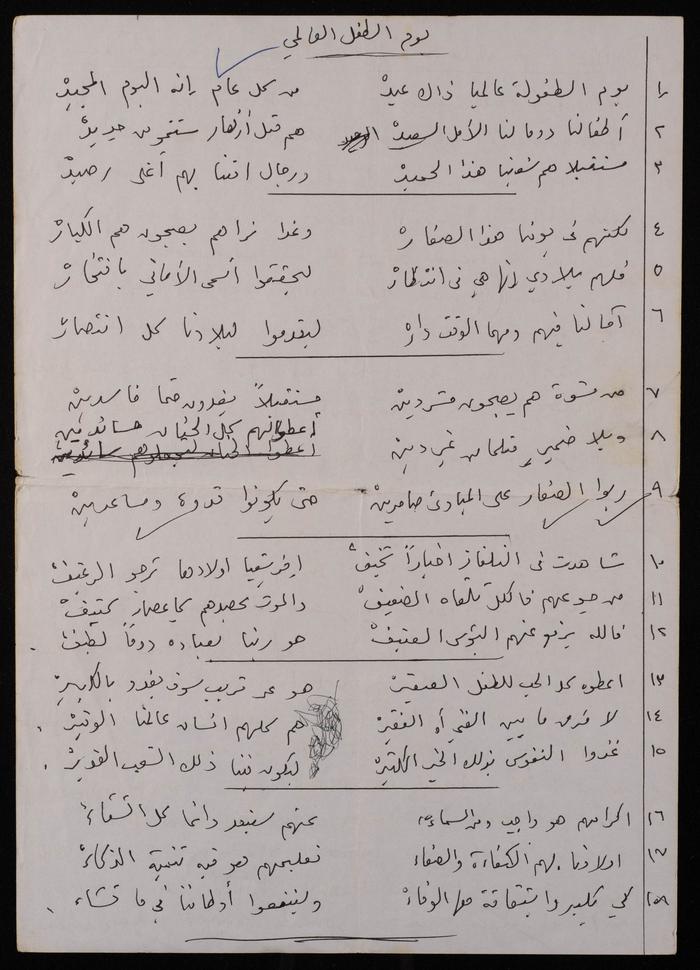 يوم الطفل العالمي
١ يوم الطفولة عالميا ذاك عيدْ من كل عام إنه اليوم المجيدْ
٢ أطفالنا دوما لنا الأمل السعيدْ هم مثل أزهار ستنمو من جديدْ
٣ مستقبلا هم شعبنا هذا الحميدْ ورجال امتنا بهم أغلى رصيدْ
٤ لكنهم في يومنا هذا الصغارْ وغدا نراهم يصبحون هم الكبارْ
٥ فلهم بلادي إنها هي في انتظارْ ليحققوا أسمى الأماني بافتخارْ
٦ آمالنا فيهم ومهما الوقت دارْ ليقدموا لبلادنا كل انتصارْ
٧ من قسوة هم يصبحون مشردينْ مستقبلاً يغدون حتما فاسدينْ
٨ وبلا ضمير غير دينْ أعطوانهم كل الحنان
٩ ربوا الصغار على المبادئ صامدينْ حتى يكونوا قدوة ومساعدينْ
١٠ شاهدت في التلفاز اخباراً تخيفْ افريقيا اولادها ترجو الرغيفْ
١١ من جوعهم فالكل تلقاه الضعيفْ والموت يحصدهم كإعصار عنيفْ
١٢ فالله يرفع عنهم البؤس العنيفْ هو ربنا بعباده دوماً لطيفْ
١٣ اعطوه كل الحب للطفل الصغيرْ هو عن قريب سوف يغدو بالكبيرْ
١٤ لا فرق ما بين الغني أو الفقيرْ هم كلهم انسان عالمنا
١٥ غذوا النفوس بذلك الخير الكثيرْ ليكون فينا ذلك الشعب القديرْ
١٦ اكرامهم هو واجب ومن السماءْ عنهم سنبعد دائما كل الشقاءْ
١٧ اولادنا بهم الكفاءة والصفاءْ تعليمهم هو فيه تنمية الذكاءْ
١٨ كي يكبروا الوفاءْ ولينفعوا أوطاننا في ما تشاء